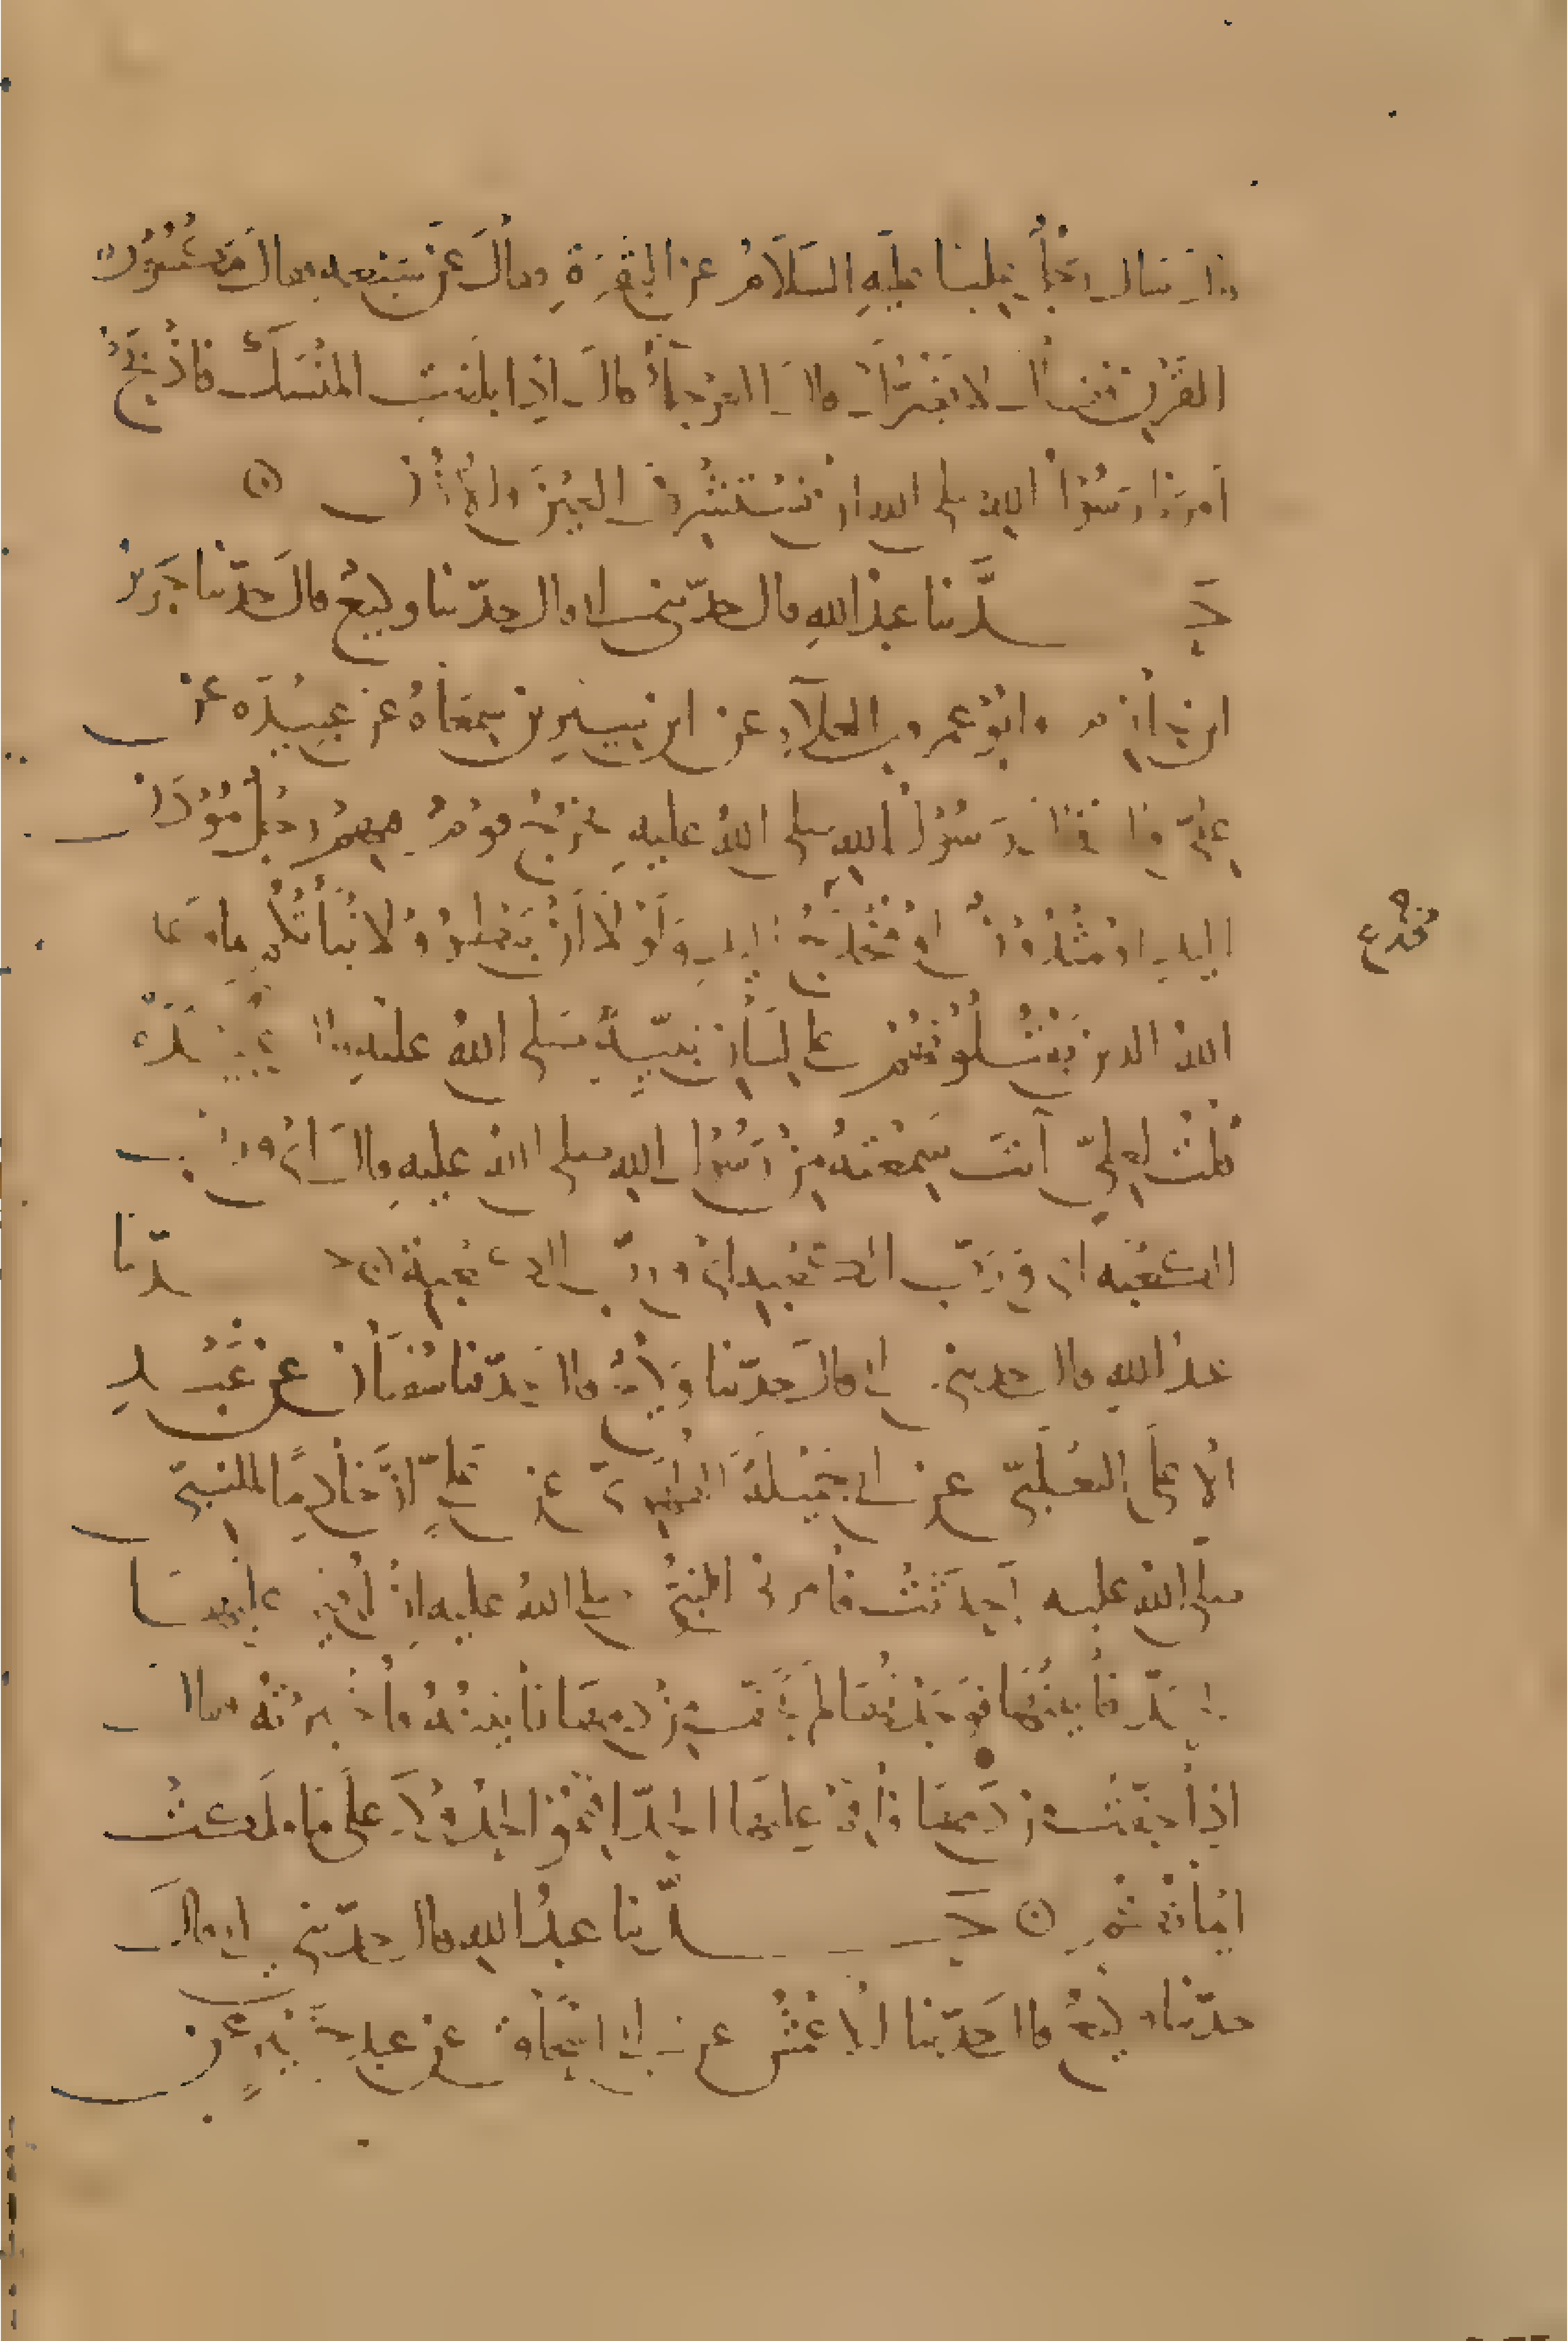 قال سال رجل عليا عليه السلام عن البقرة فقال عن سبعه فقال مكسورة
القرن فقال لا يضرك قال العرجاء قال اذا بلغت المنسك فاذبح
امرنا رسول الله صلى الله ان نستشرف العين والاذن
حدثنا عبد الله قال حدثني ابي قال حدثنا وكيع قال حدثنا جرير
ابن حازم وابو عمرو بن العلاء عن ابن سيرين سمعاه عن عبيدة عن
علي قال قال رسول الله صلى الله عليه يخرج قوم فيهم رجل مودن
اليد او مثدون او مخدج اليد ولولا ان تبطروا لانباتكم بما وعد
الله الذين يقتلونهم على لسان نبيه صلى الله عليه قال عبيدة
قلت لعلي انت سمعته من رسول الله صلى الله عليه قال اي ورب
الكعبه اي ورب الكعبه اي ورب الكعبة ح حدثنا
عبد الله قال حدثني ابي قال حدثنا وكيع قال حدثنا سفيان عن عبد
الاعلى الثعلبي عن ابي جميلة الطهوي عن علي ان خادما للنبي
صلى الله عليه احدثت فامرني النبي صلى الله عليه ان اقيم عليها
الحد فاتيتها فوجدتها لم تجف من دمها فاتيته فاخبرته فقال
اذا جفت من دمها فاقم عليها الحد اقيموا الحدود على ما ملكت
ايمانكم حدثنا عبد الله قال حدثني ابي قال
حدثنا وكيع قال حدثنا الاعمش عن ابي اسحاق عن عبد خير عن